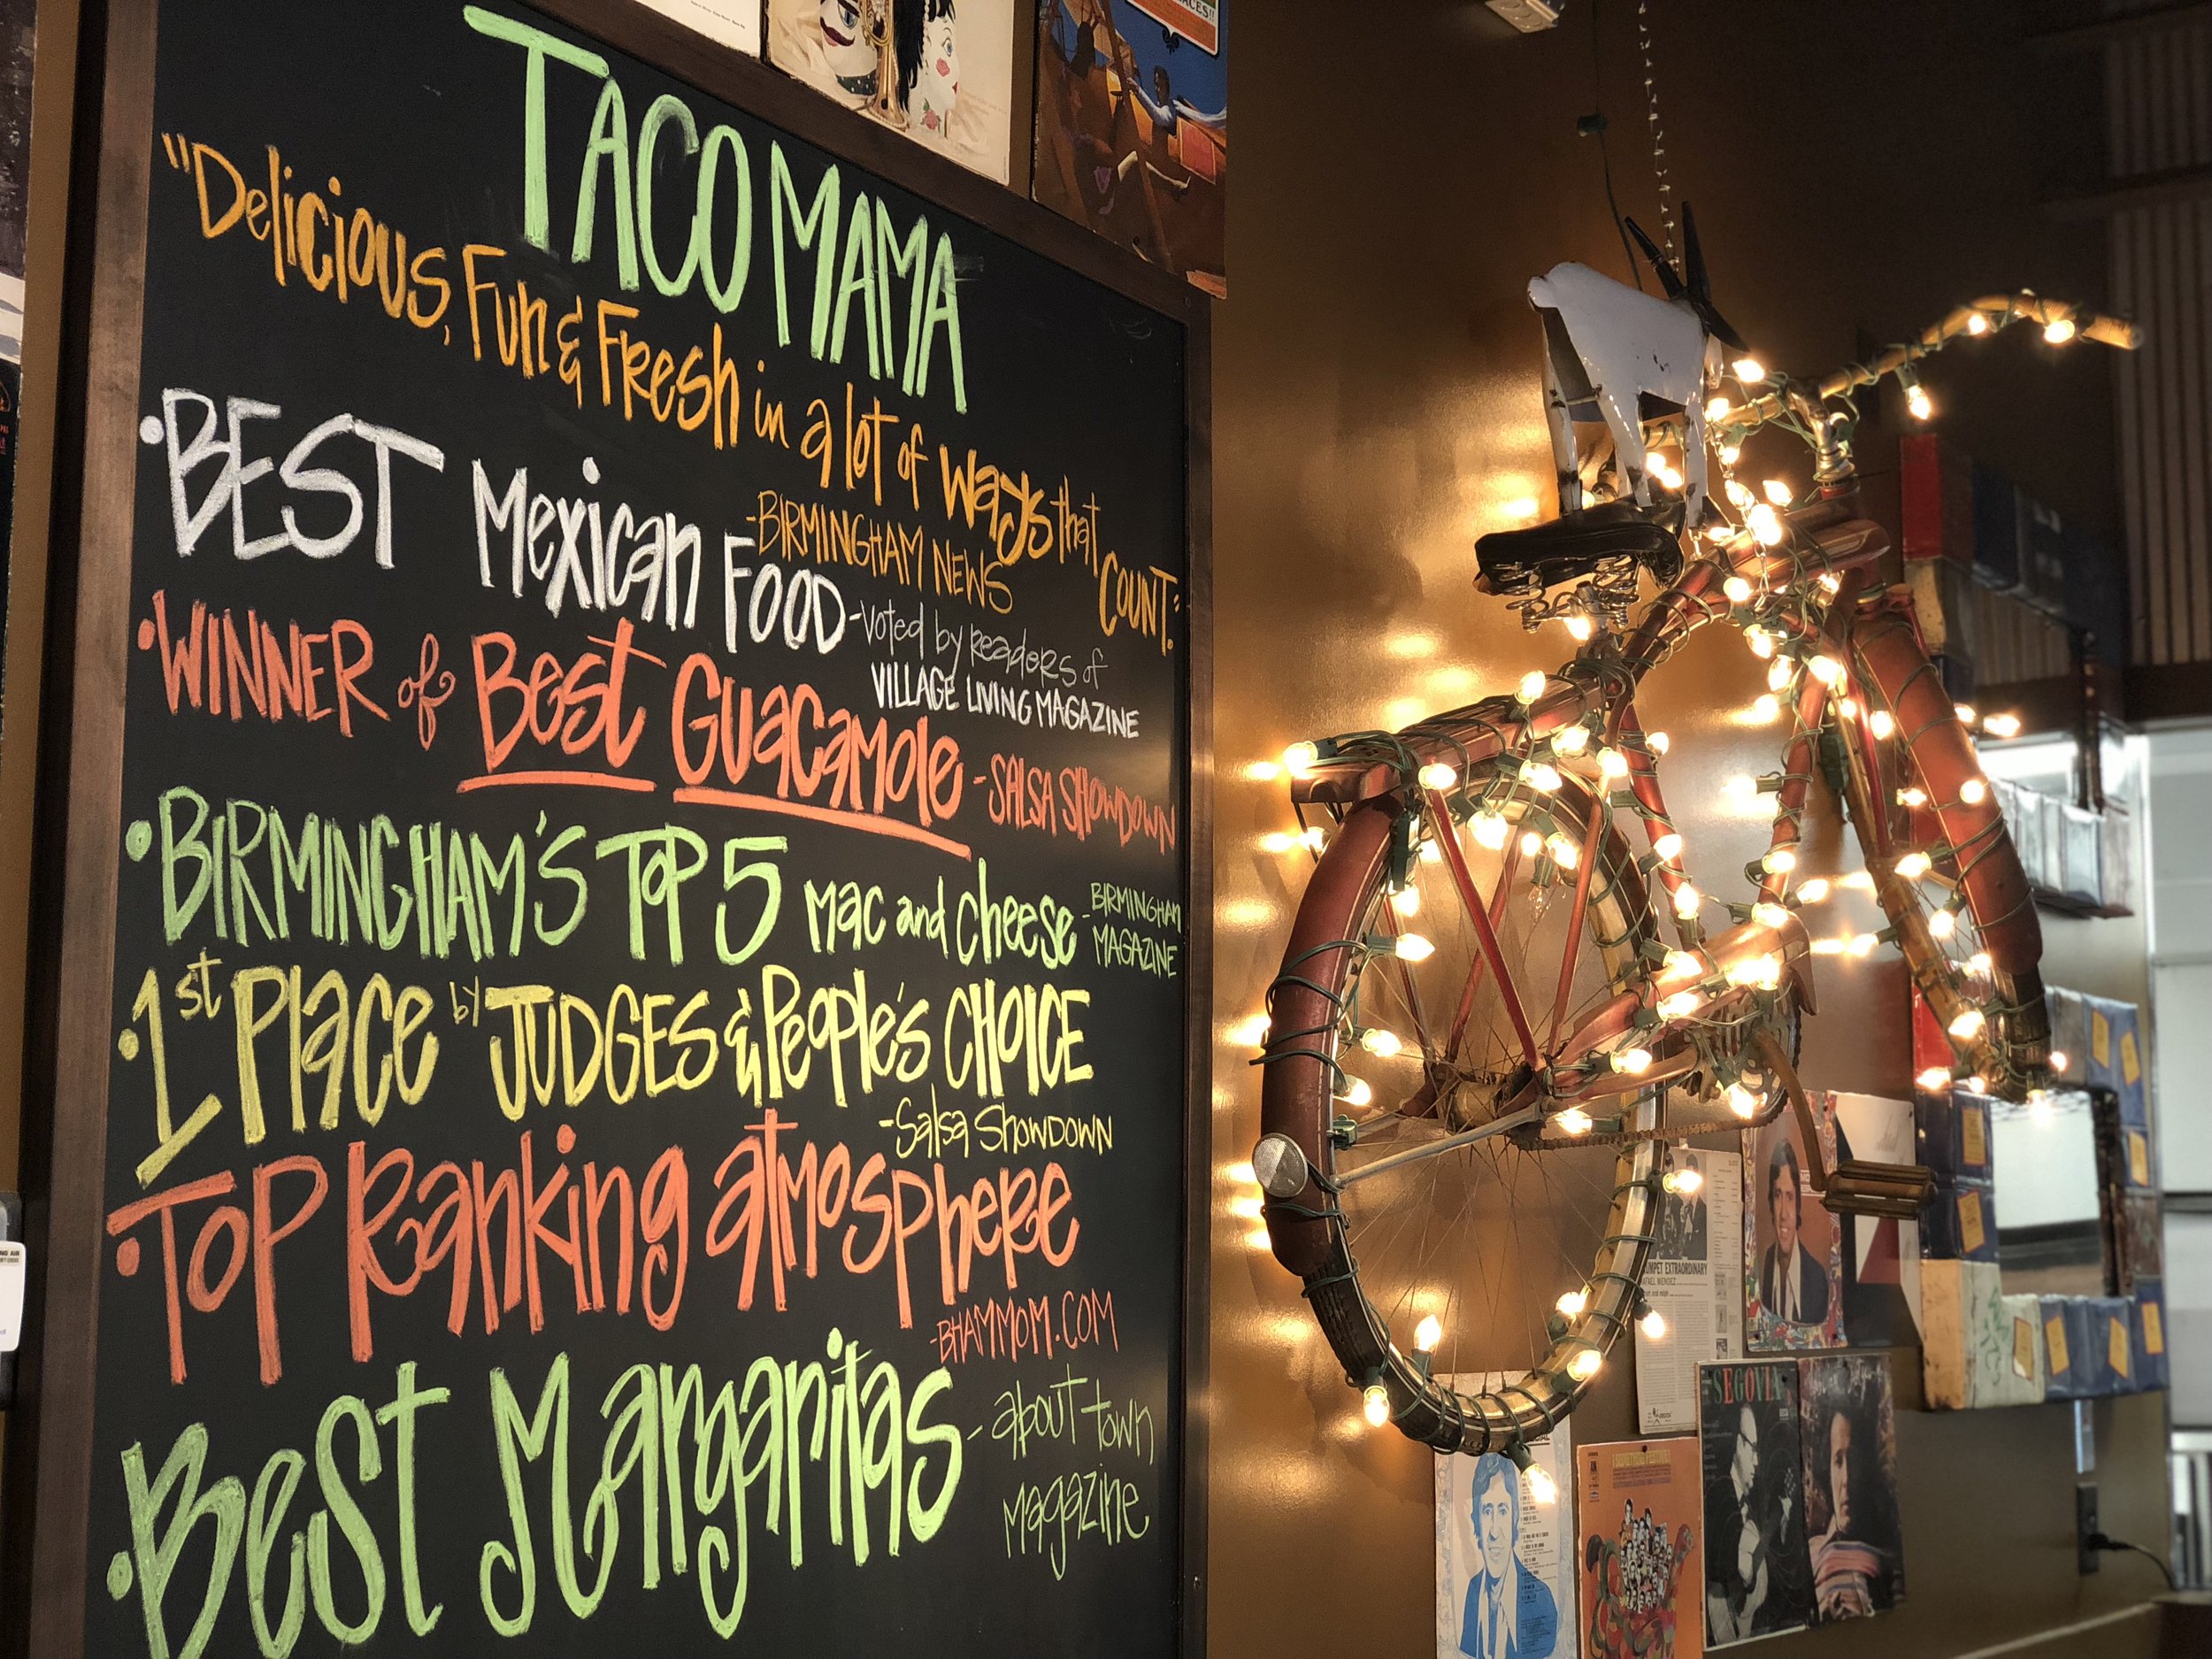 TACO MAMA
"Delicious, Fun & Fresh in a lot of ways that COUNT."
-BIRMINGHAM NEWS
• BEST Mexican FOOD -voted by readers of
VILLAGE LIVING MAGAZINE
• WINNER of Best Guacamole -SALSA SHOWDOWN
• BIRMINGHAM'S TOP 5 mac and cheese -BIRMINGHAM
MAGAZINE
• 1st Place by JUDGES & People's CHOICE
-Salsa Showdown
• TOP Ranking atmosphere
-BHAMMOM.COM
• Best Margaritas - about town
magazine
ACES!!
MPET EXTRAORDINARY
RAFAEL MENDEZ
SEGOVIA